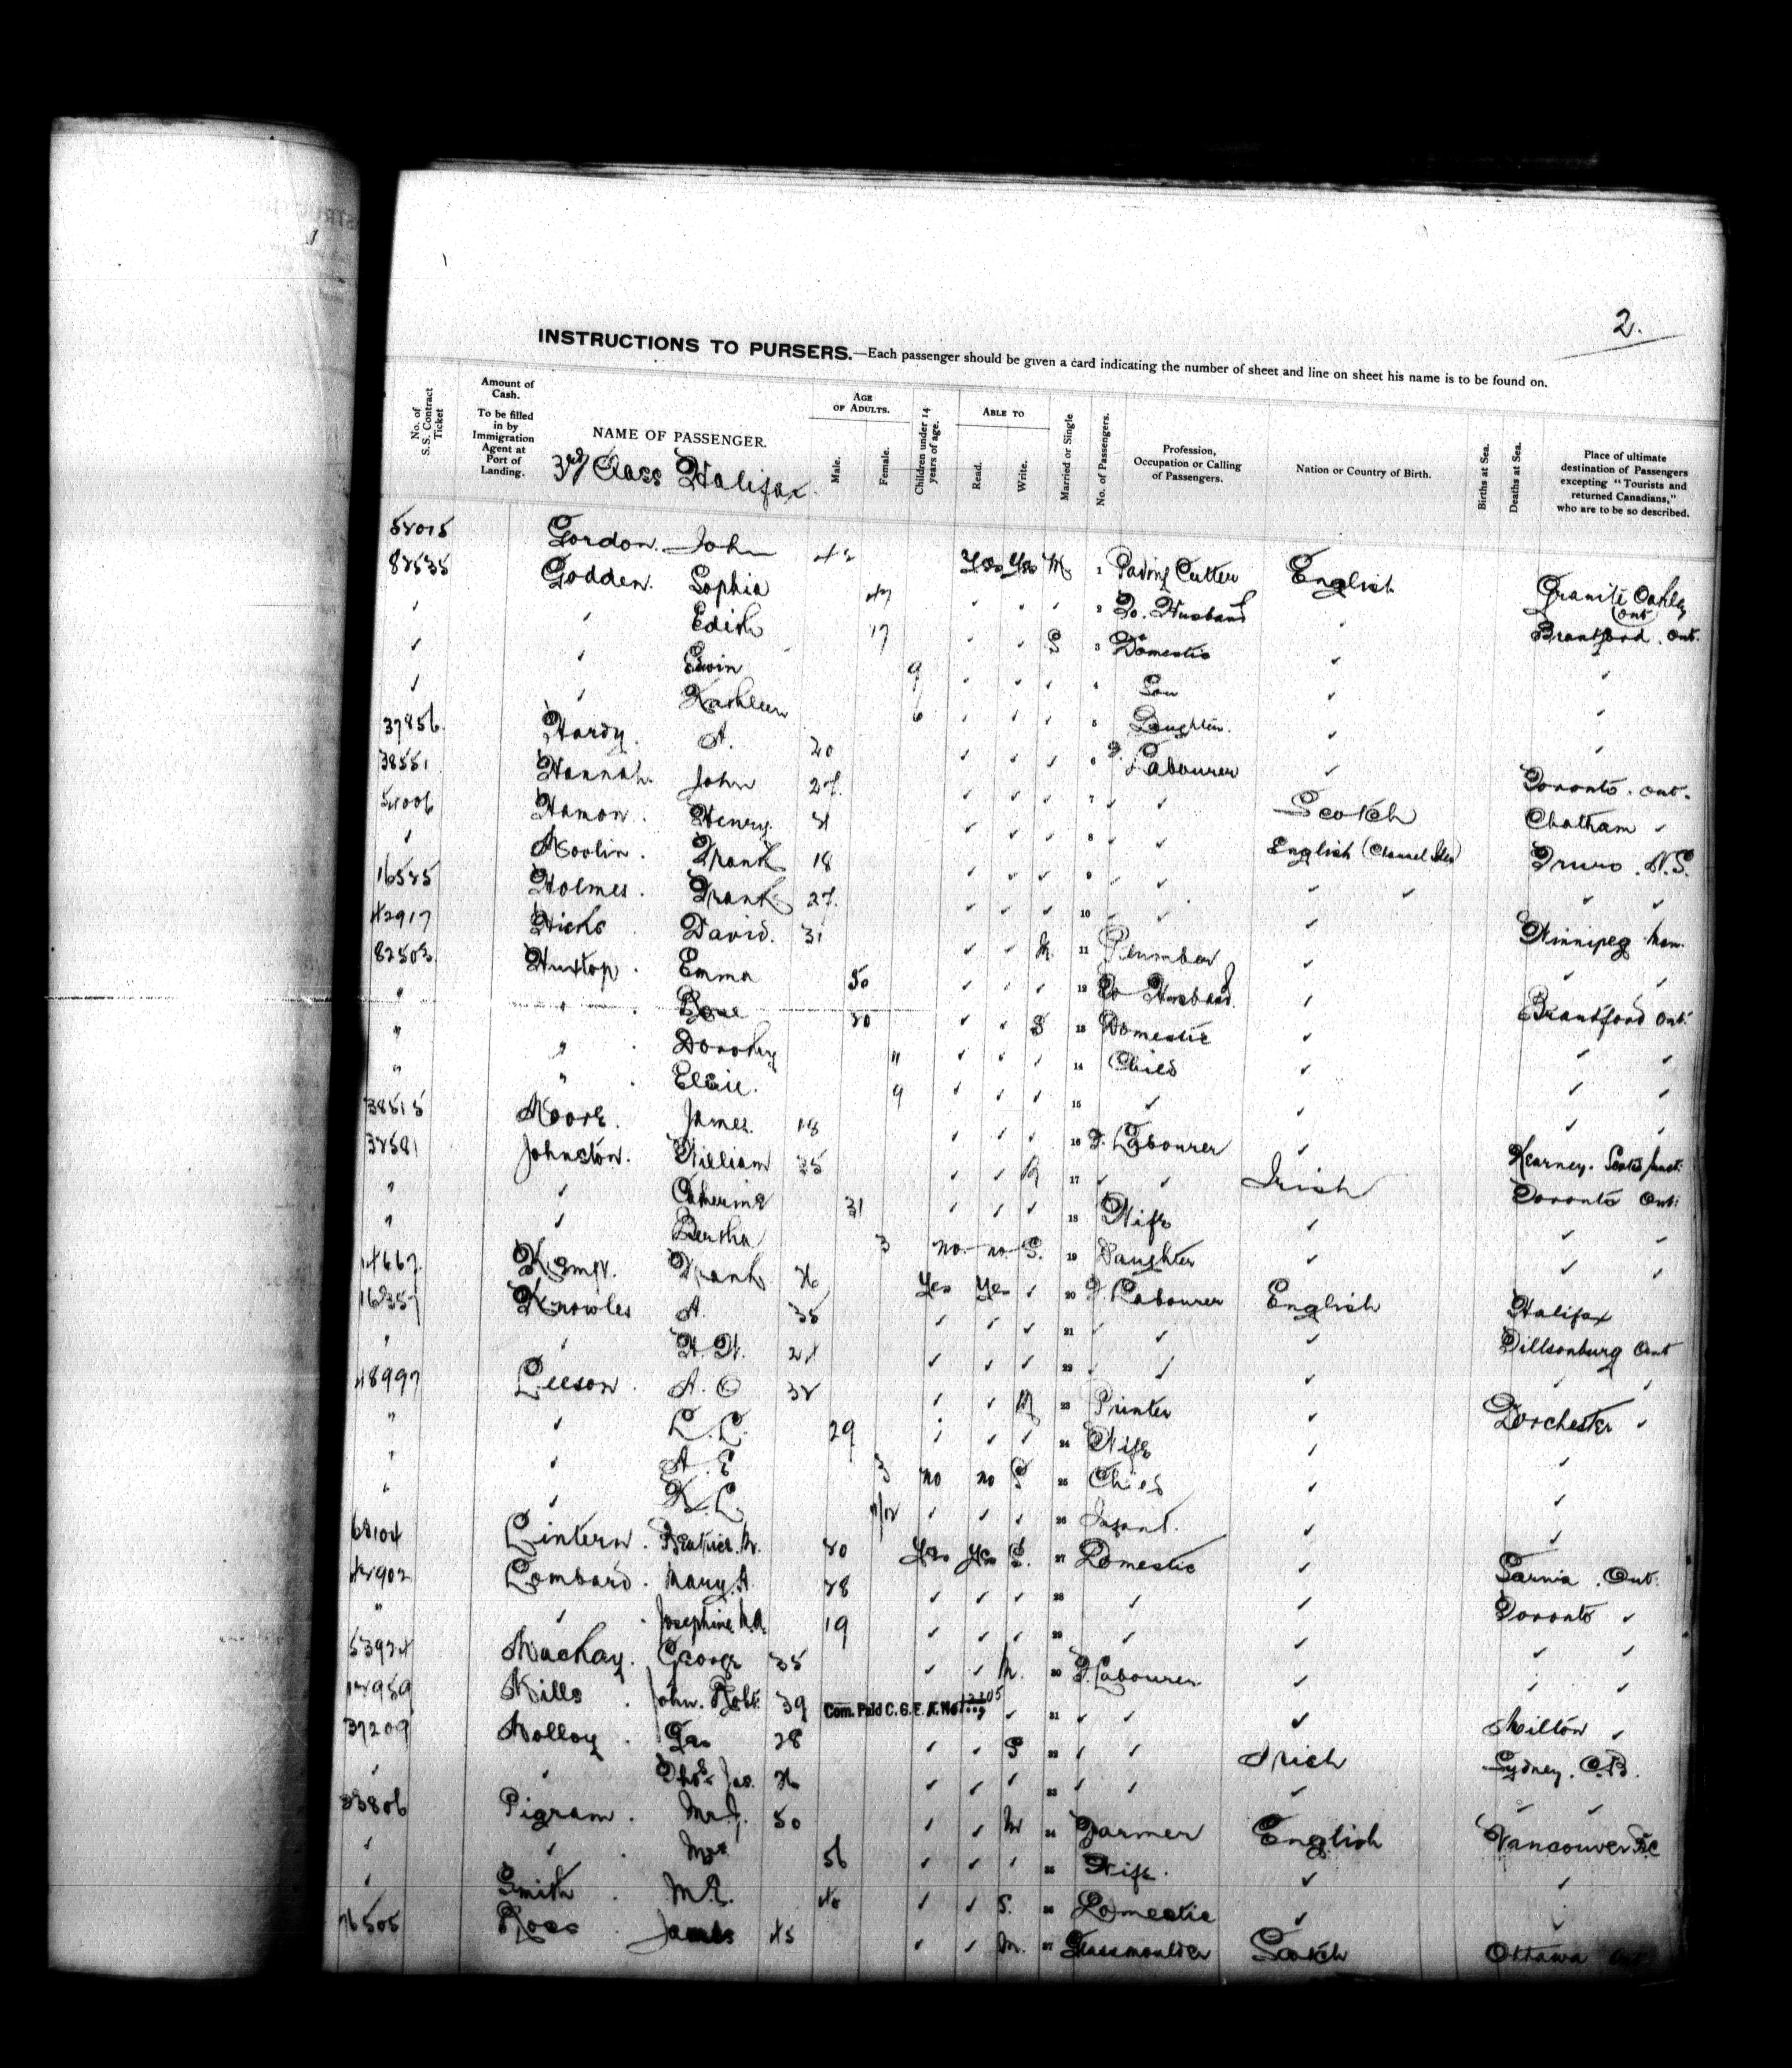 2.
INSTRUCTIONS TO PURSERS.—Each passenger should be given a card indicating the number of sheet and line on sheet his name is to be found on.
No. of S.S. Contract Ticket
Amount of Cash. To be filled in by Immigration Agent at Port of Landing.
NAME OF PASSENGER.
AGE OF ADULTS.
Male.
Female.
Children under 14 years of age.
ABLE TO
Read.
Write.
Married or Single
No. of Passengers.
Profession, Occupation or Calling of Passengers.
Nation or Country of Birth.
Births at Sea.
Deaths at Sea.
Place of ultimate destination of Passengers excepting "Tourists and returned Canadians," who are to be so described.
3rd Class Halifax.
Gordon. John Yes Yes M 1 Paving Cutter English Granite Ont
82535 Godden. Sophia 47 ✓ ✓ ✓ 2 To. Husband ✓ Brantford. Ont.
✓ " Edith 17 ✓ ✓ S 3 Domestic ✓ ✓
✓ " Edwin 9 ✓ ✓ ✓ 4 Son ✓ ✓
✓ " Kathleen 6 ✓ ✓ ✓ 5 Daughter. ✓ ✓
37856. Hardy. A. 20 ✓ ✓ ✓ 6 F. Labourer ✓ Toronto. Ont.
38551 Hannah. John 27. ✓ ✓ ✓ 7 ✓ ✓ Scotch Chatham ✓
Hamon. Henry. ✓ ✓ ✓ 8 ✓ ✓ English (Channel Isles) Truro. N.S.
✓ Frank 18 ✓ ✓ ✓ 9 ✓ ✓ ✓ ✓ ✓ ✓
16525 Holmes. Frank. 27. ✓ ✓ ✓ 10 ✓ ✓ ✓ Winnipeg Man.
42917 Hicks David. 31 ✓ ✓ M. 11 Plumber ✓ ✓ ✓
82503 Huxtop. Emma 50 ✓ ✓ ✓ 12 To Husband. ✓ Brantford Ont.
" " Rose 20 ✓ ✓ S 13 Domestic ✓ ✓ ✓
" " Dorothy 11 ✓ ✓ ✓ 14 Child ✓ ✓ ✓
" " Elsie. 9 ✓ ✓ ✓ 15 ✓ ✓ ✓ ✓
38515 Moore. James. 18 ✓ ✓ ✓ 16 F. Labourer ✓ Kearney.
Johnston. William 35 ✓ ✓ M 17 ✓ ✓ Irish Toronto Ont.
" ✓ Catherine 31 ✓ ✓ ✓ 18 Wife ✓ ✓ ✓
" ✓ Bertha 3 no no S. 19 Daughter ✓ ✓ ✓
Kemp. Frank 26 Yes Yes ✓ 20 F. Labourer English Halifax
16357 Knowles A. 35 ✓ ✓ ✓ 21 ✓ ✓ ✓ Tillsonburg Ont
" ✓ H. H. 24 ✓ ✓ ✓ 22 ✓ ✓ ✓ ✓ ✓
48997 Leeson. A. O 32 ✓ ✓ M 23 Printer ✓ Dorchester ✓
" ✓ L. L. 29 ✓ ✓ ✓ 24 Wife ✓ ✓
" ✓ A. E 3 no no S 25 Child ✓ ✓
" ✓ K. L ✓ ✓ ✓ 26 Infant. ✓ ✓
Lintern. Beatrice. M. 20 Yes Yes S. 27 Domestic ✓ Sarnia. Ont.
Lombard. Mary. A. 28 ✓ ✓ ✓ 28 ✓ ✓ Toronto ✓
" ✓ Josephine M.A. 19 ✓ ✓ ✓ 29 ✓ ✓ ✓ ✓
Mackay. George 35 ✓ ✓ M. 30 F. Labourer ✓ ✓ ✓
Mills. John. Robt. 39 Com. Paid C. G. E. A. No ✓ 31 ✓ ✓ ✓ Milton ✓
37209 Molloy. 28 ✓ ✓ S 32 ✓ ✓ Irish Sydney. C.B.
✓ " Thos. Jas. 26 ✓ ✓ ✓ 33 ✓ ✓ ✓ ✓ ✓
33806 Pigram. Mr. J. 50 ✓ ✓ M 34 Farmer English Vancouver B.C
✓ ✓ Mrs. 56 ✓ ✓ ✓ 35 Wife. ✓ ✓
✓ Smith. M. E. 40 ✓ ✓ S. 36 Domestic ✓ ✓
76505 Ross James 45 ✓ ✓ M. 37 Glassmoulder Scotch Ottawa Ont